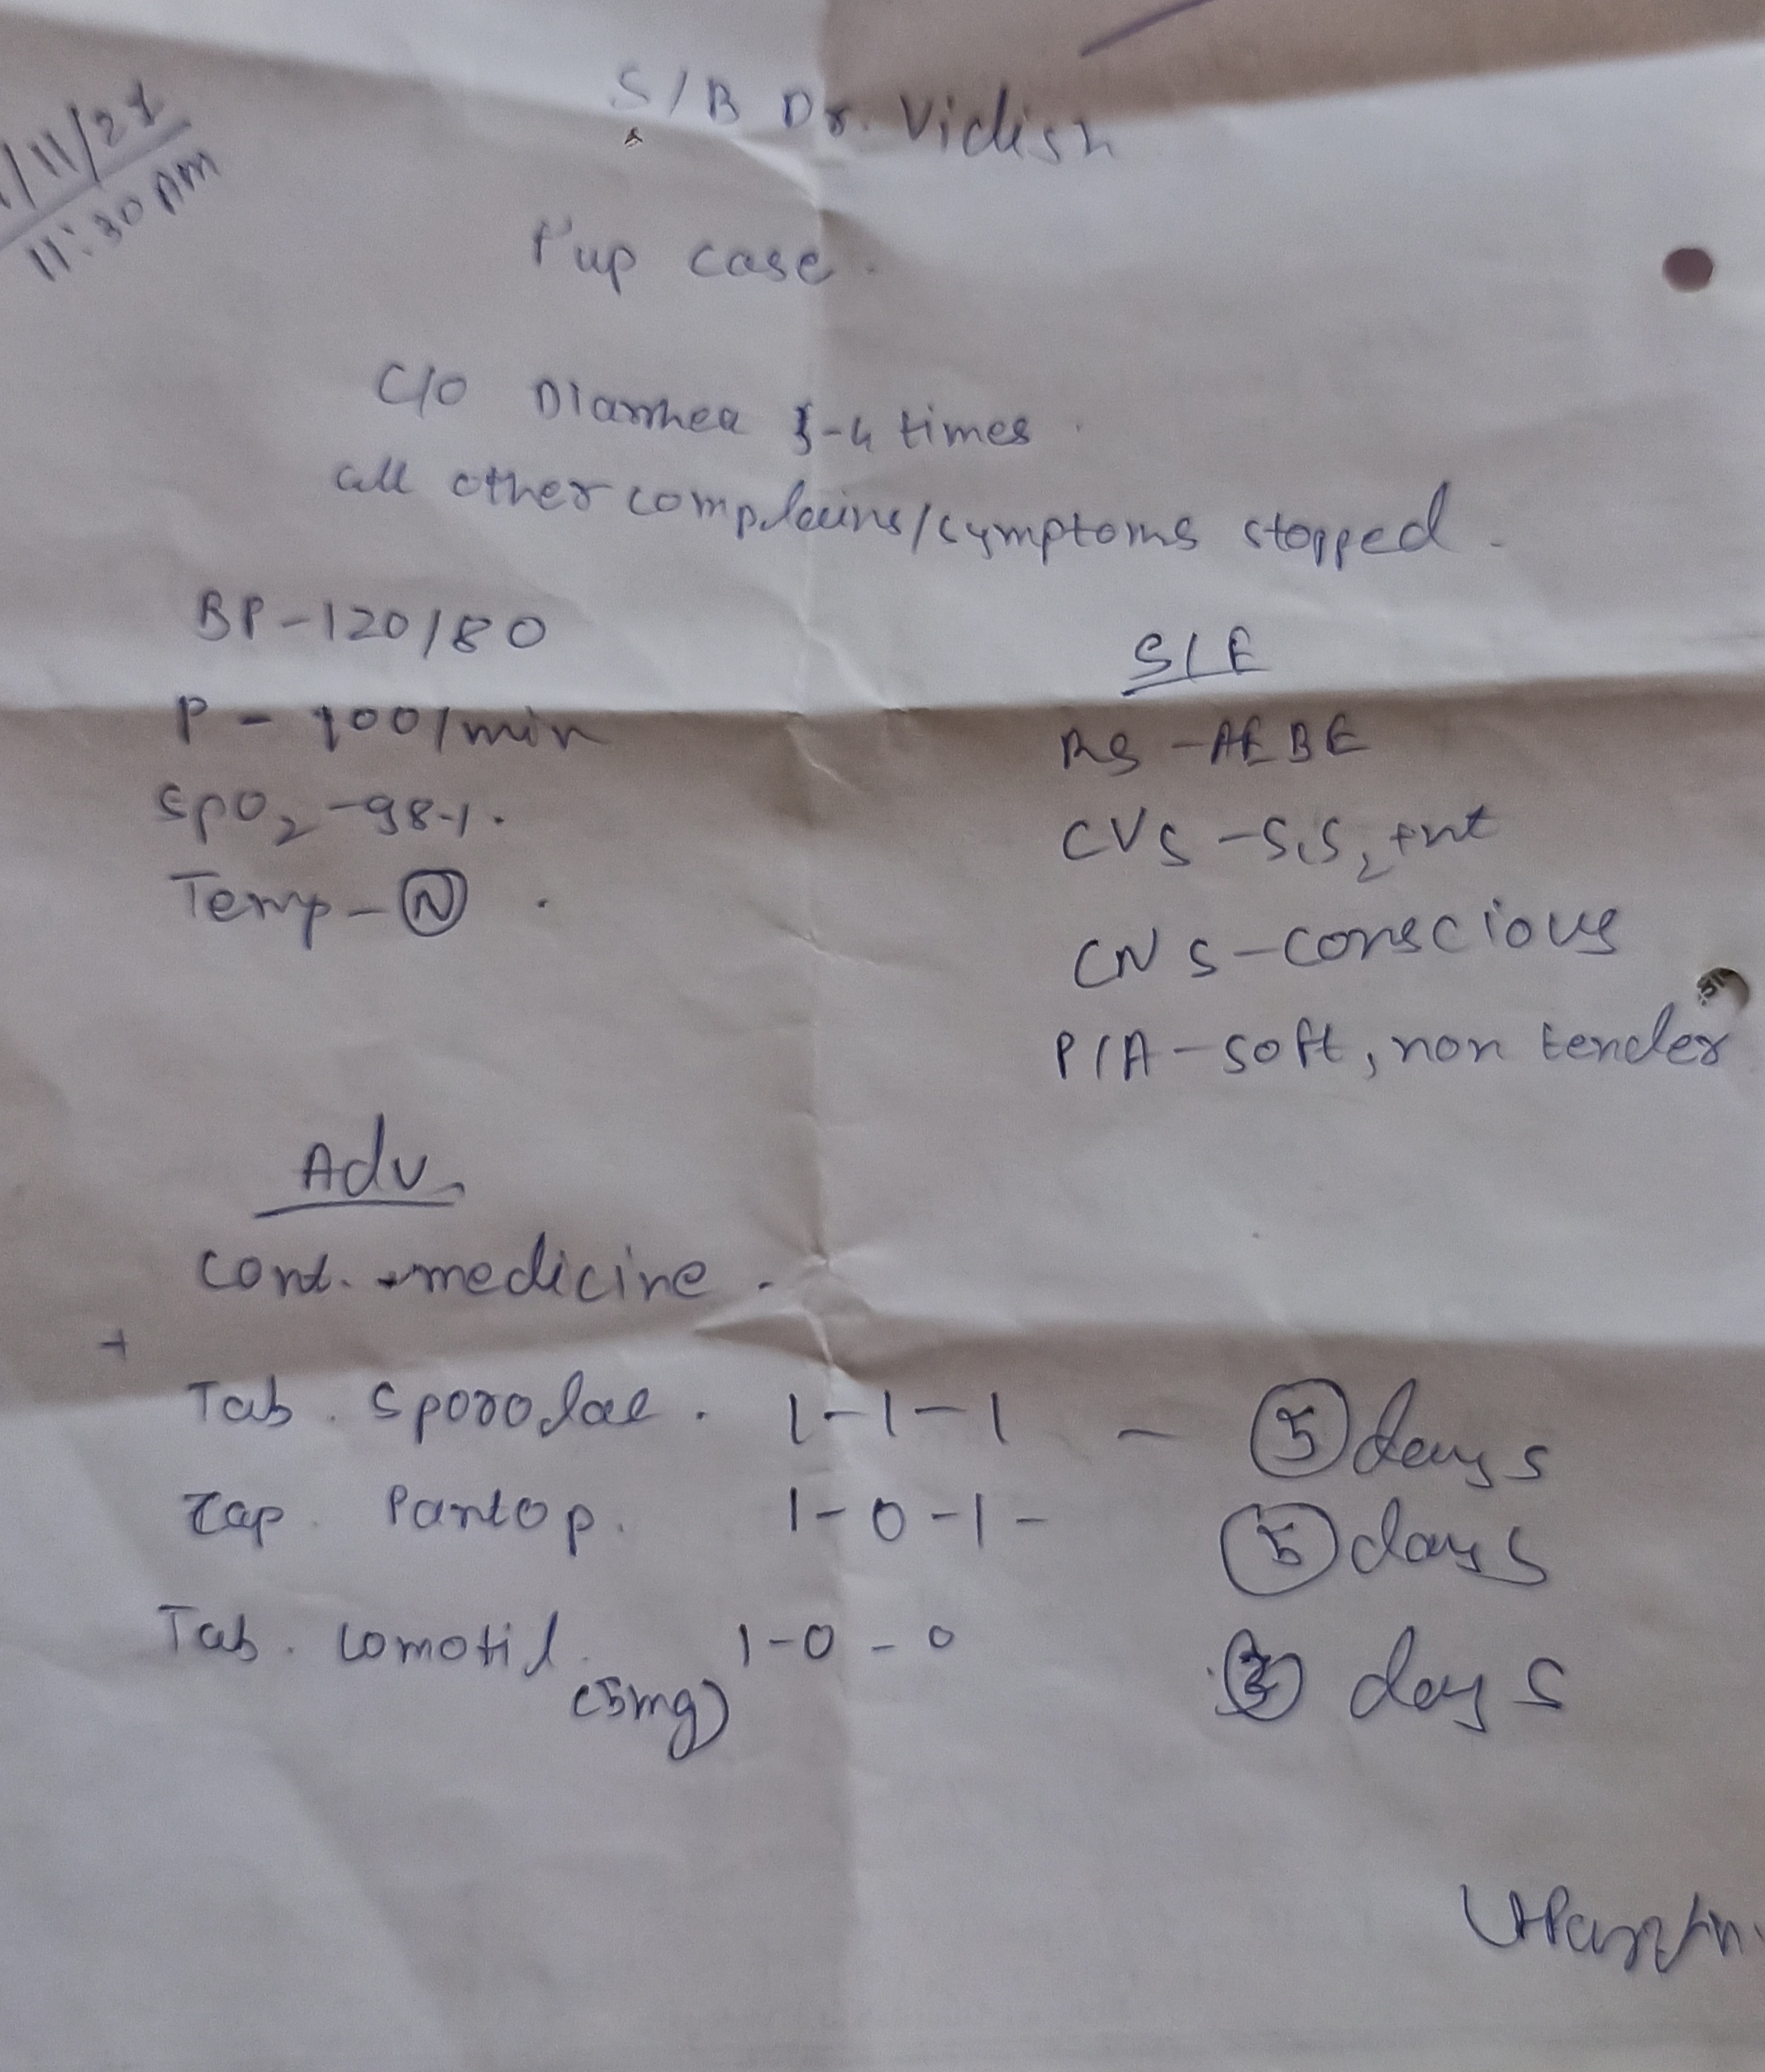 S/B Dr. Vidish
/11/21
11:30 AM
f'up case.
C/O Diarrhea 3-4 times.
all other complains/symptoms stopped.
BP-120/80
P - 100/min
SpO2 -98%.
Temp - N.
S/E
RS - AEBE
CVS - S1S2 +nt
CNS - conscious
P/A - soft, non tender
Adv
cont. medicine.
+
Tab. Sporolac. 1-1-1 - 5 days
Cap. Pantop. 1-0-1- 5 days
Tab. Lomotil. (5mg) 1-0-0 days